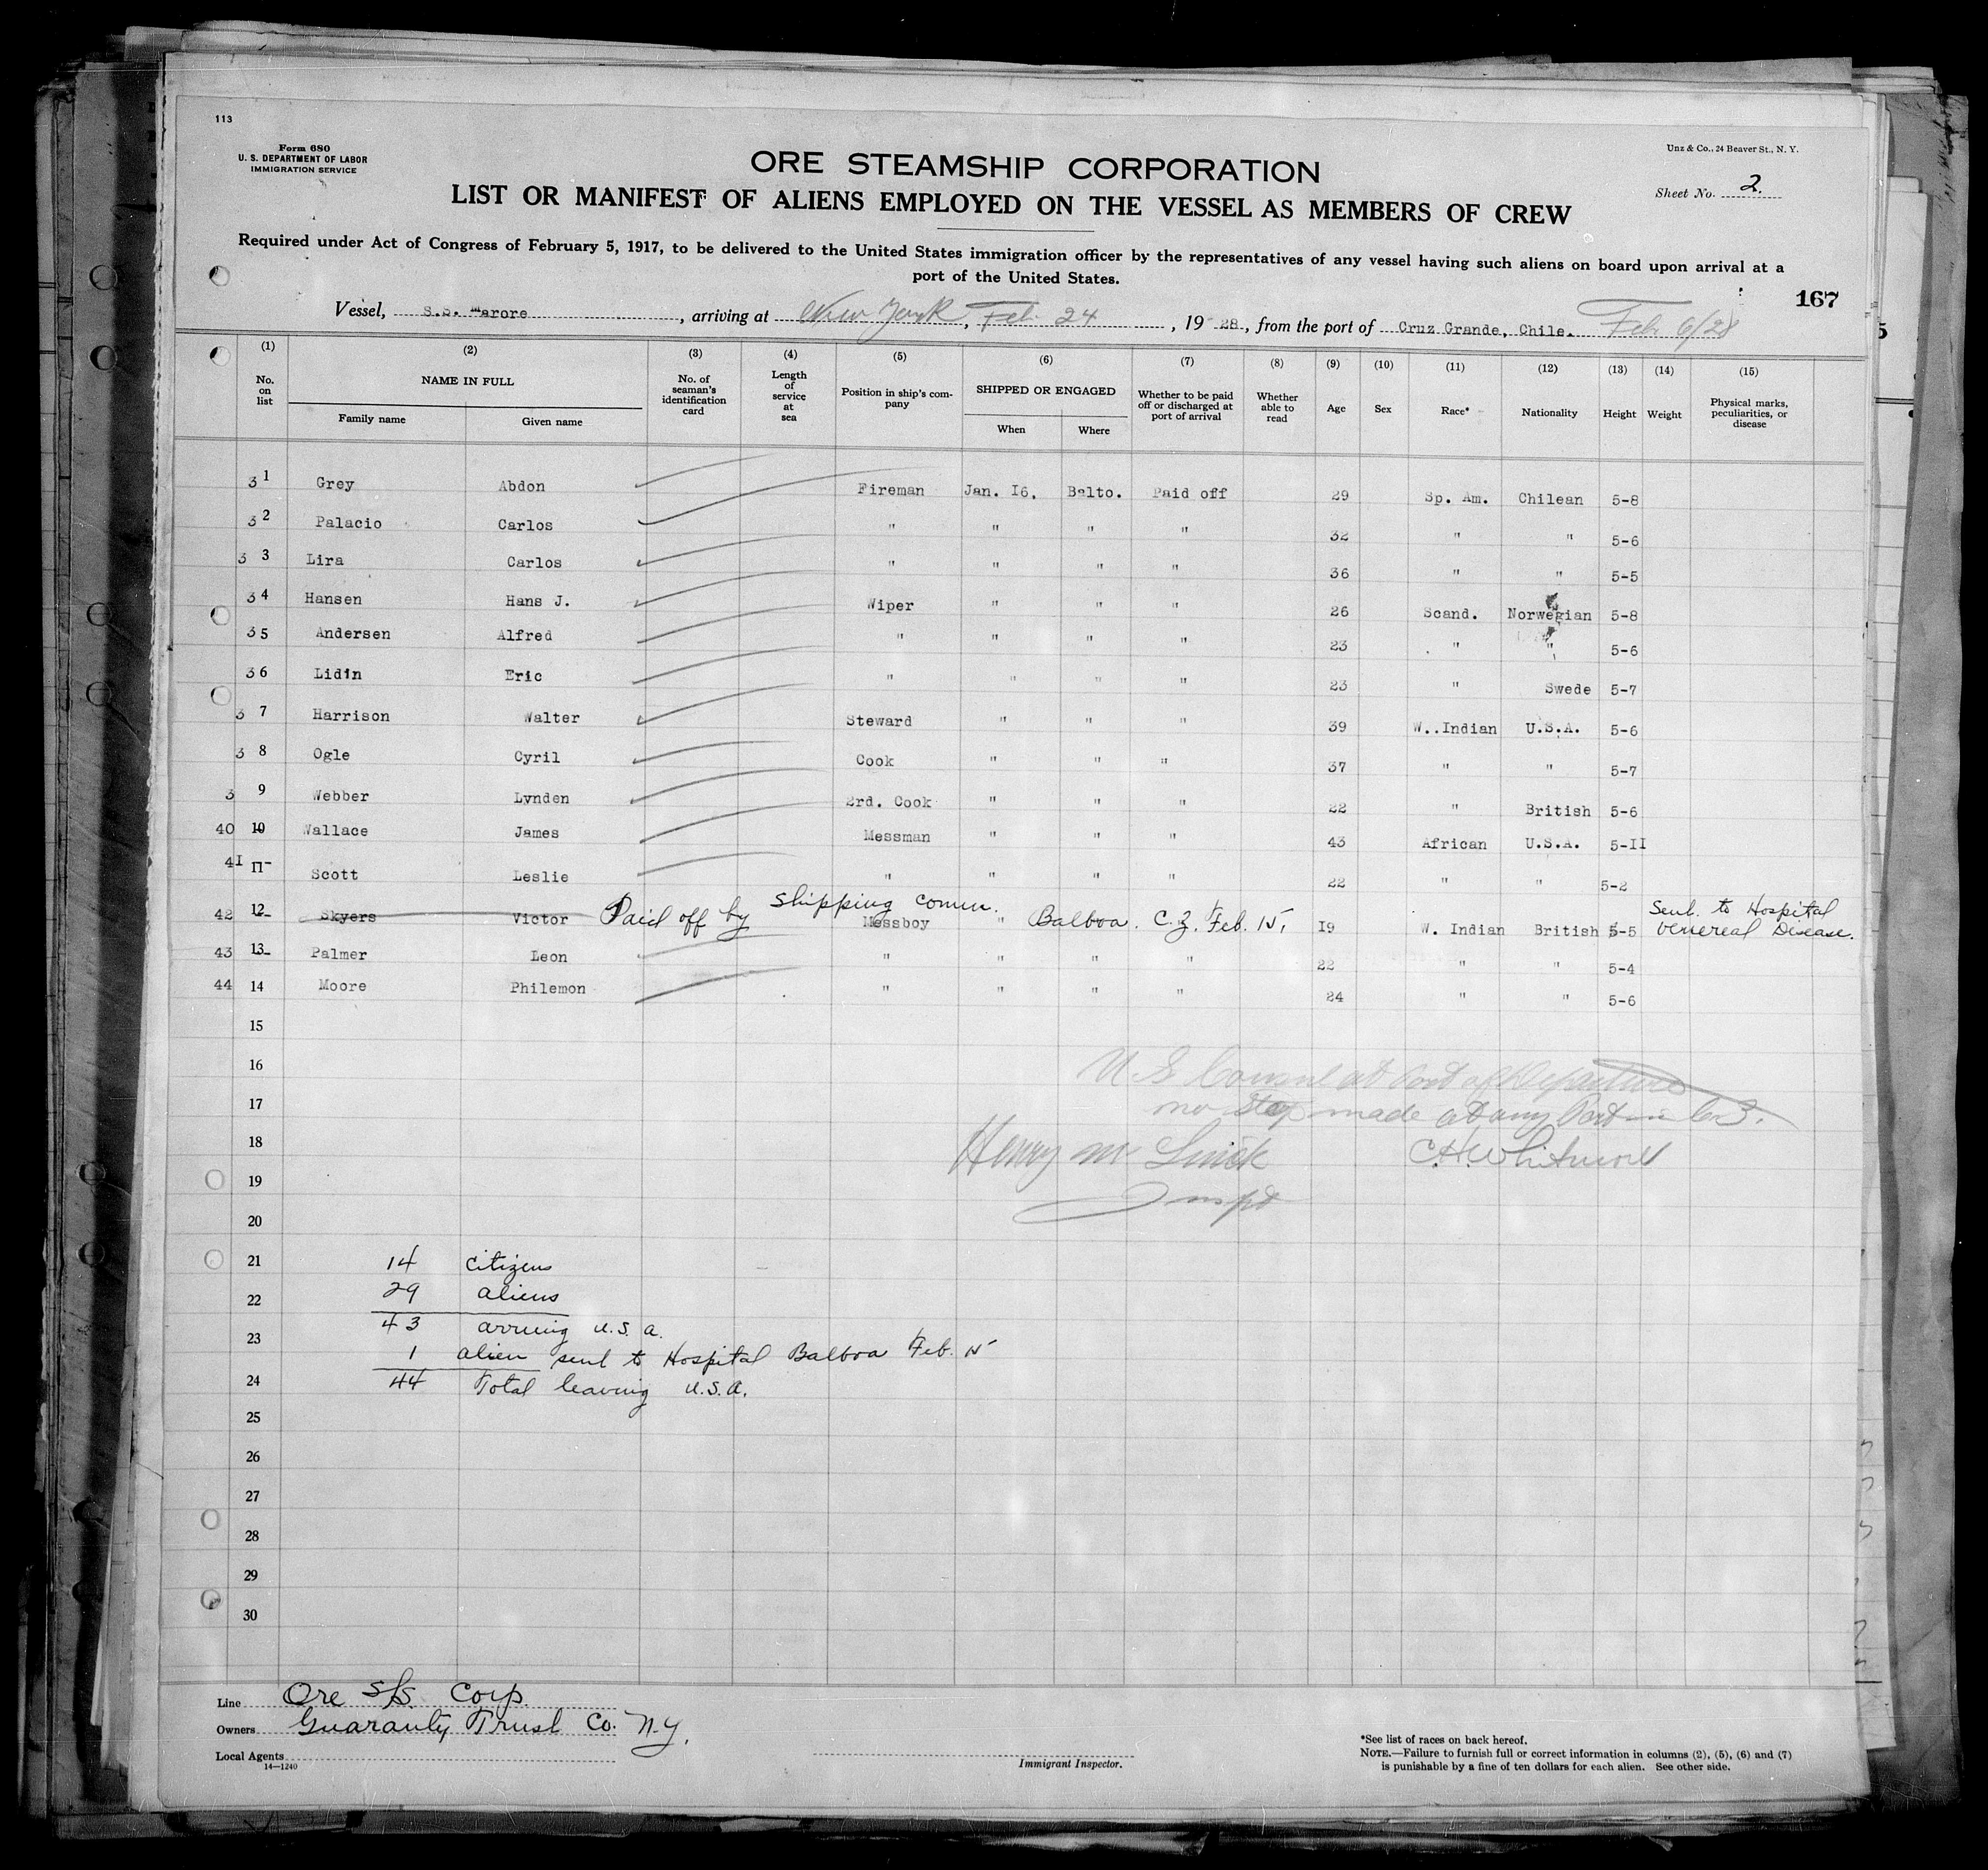 113
Form 680
U. S. DEPARTMENT OF LABOR
IMMIGRATION SERVICE
Unz & Co., 24 Beaver St., N. Y.
ORE STEAMSHIP CORPORATION
Sheet No. 2.
LIST OR MANIFEST OF ALIENS EMPLOYED ON THE VESSEL AS MEMBERS OF CREW
Required under Act of Congress of February 5, 1917, to be delivered to the United States immigration officer by the representatives of any vessel having such aliens on board upon arrival at a
port of the United States.
167
Vessel, S.S. Marore, arriving at New York, Feb. 24, 1928, from the port of Cruz Grande, Chile. Feb 6/28
(1) (2) (3) (4) (5) (6) (7) (8) (9) (10) (11) (12) (13) (14) (15)
No. on list NAME IN FULL Family name Given name No. of seaman's identification card Length of service at sea Position in ship's com-pany SHIPPED OR ENGAGED When Where Whether to be paid off or discharged at port of arrival Whether able to read Age Sex Race* Nationality Height Weight Physical marks, peculiarities, or disease
3 1 Grey Abdon Fireman Jan. 16, Balto. Paid off 29 Sp. Am. Chilean 5-8
3 2 Palacio Carlos " " " " 32 " " 5-6
3 3 Lira Carlos " " " " 36 " " 5-5
3 4 Hansen Hans J. Wiper " " " 26 Scand. Norwegian 5-8
3 5 Andersen Alfred " " " " 23 " " 5-6
3 6 Lidin Eric " " " " 23 " Swede 5-7
3 7 Harrison Walter Steward " " " 39 W..Indian U.S.A. 5-6
3 8 Ogle Cyril Cook " " " 37 " " 5-7
3 9 Webber Lynden 2rd. Cook " " " 22 " British 5-6
40 10 Wallace James Messman " " " 43 African U.S.A. 5-II
4I 11 Scott Leslie " " " " 22 " " 5-2
42 12 Skyers Victor Paid off by shipping comm. Messboy " Balboa. C.Z. Feb. 15, I9 W. Indian British 5-5 Sent to Hospital Venereal Disease.
43 13 Palmer Leon " " " " 22 " " 5-4
44 14 Moore Philemon " " " " 24 " " 5-6
15
16
U.S Consul at Port of Departure
17
no stop made at any Port in C.Z.
18
Henry M C.H. Whitmore
19
Inspt
20
21 14 citizens
22 29 aliens
23 43 arriving U.S.A.
1 alien sent to Hospital Balboa Feb. 15
24 44 Total leaving U.S.A.
25
26
27
28
29
30
Line Ore S/S. Corp.
Owners Guaranty Trust Co. N.Y.
Local Agents
14—1240
Immigrant Inspector.
*See list of races on back hereof.
NOTE.—Failure to furnish full or correct information in columns (2), (5), (6) and (7)
is punishable by a fine of ten dollars for each alien. See other side.